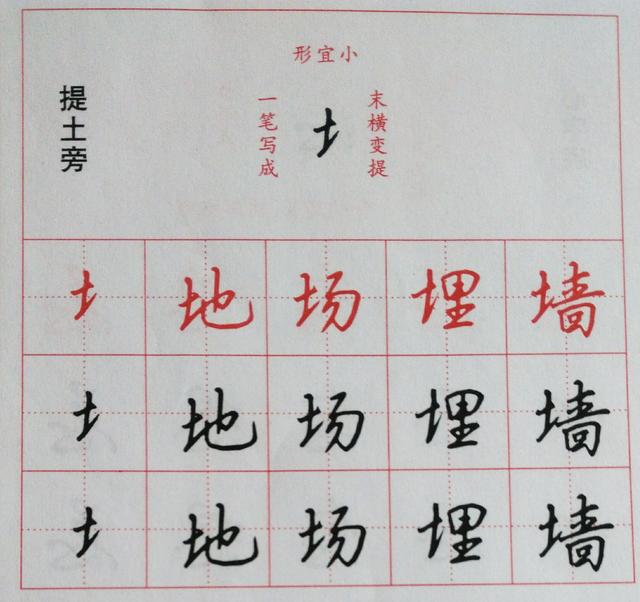 形宜小
提土旁
一笔写成
土
末横变提
土 地 场 埋 墙
土 地 场 埋 墙
土 地 场 埋 墙